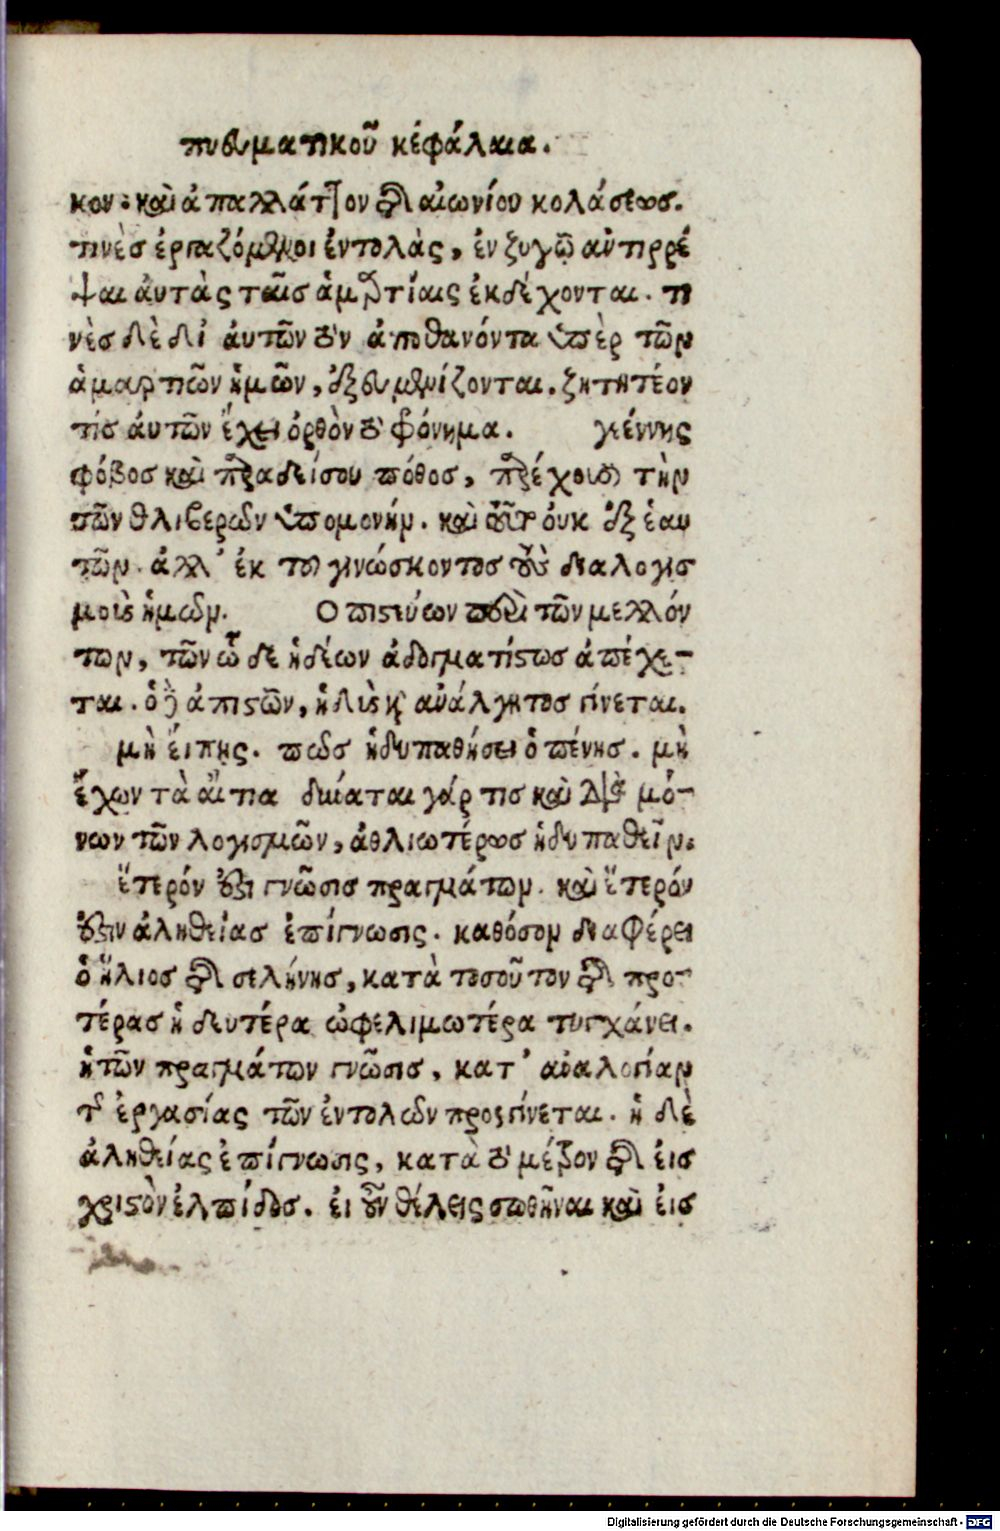 πνευματικοῦ κέφάλαια.
κον· καὶ ἀπαλλάττον τῆς αἰωνίου κολάσεως.
τινὲς ἐργαζόμενοι ἐντολὰς, ἐν ζυγῷ ἀντιρρέ
ψαι ἀυτὰς ταῖς ἁμαρτίαις ἐκδέχονται. τι
νὲς δὲ δι' ἀυτῶν τὸν ἀποθανόντα ὑπὲρ τῶν
ἁμαρτιῶν ἡμῶν, ἐξευμενίζονται. ζητητέον
τίς ἀυτῶν ἔχει ὀρθὸν τὸ φρόνημα. γεέννης
φόβος καὶ παραδείσου πόθος, παρέχουσι τὴν
τῶν θλιβερῶν ὑπομονήν. καὶ τοῦτο ὀυκ ἐξ ἑαυ
τῶν. ἀλλ' ἐκ τοῦ γινώσκοντος τοὺς διαλογισ
μοὺς ἡμῶν. Ο πιστεύων περὶ τῶν μελλόν
των, τῶν ὧδε ἡδέων ἀδογματίστως ἀπέχε-
ται. ὁ δὲ ἀπιστῶν, ἡδὺς καὶ ἀνάλγητος γίνεται.
μὴ ἔιπῃς. πῶς ἡδυπαθήσει ὁ πένης. μὴ
ἔχων τὰ ἄιτια δύναται γάρ τις καὶ διὰ μό-
νων τῶν λογισμῶν, ἀθλιωτέρως ἡδυπαθεῖν.
ἕτερόν ἐστι γνῶσις πραγμάτων. καὶ ἕτερόν
ἐστιν ἀληθείας ἐπίγνωσις. καθόσον διαφέρει
ὁ ἥλιος τῆς σελήνης, κατὰ τοσοῦτον τῆς προ-
τέρας ἡ δευτέρα ὠφελιμωτέρα τυγχάνει.
ἡ τῶν πραγμάτων γνῶσις, κατ' ἀναλογίαν
τῆς ἐργασίας τῶν ἐντολῶν προςγίνεται. ἡ δὲ
ἀληθείας ἐπίγνωσις, κατὰ τὸ μέτρον τῆς ἐις
χριστὸν ἐλπίδος. ἐι οὖν θέλεις σωθῆναι καὶ ἐις
Digitalisierung gefördert durch die Deutsche Forschungsgemeinschaft - DFG